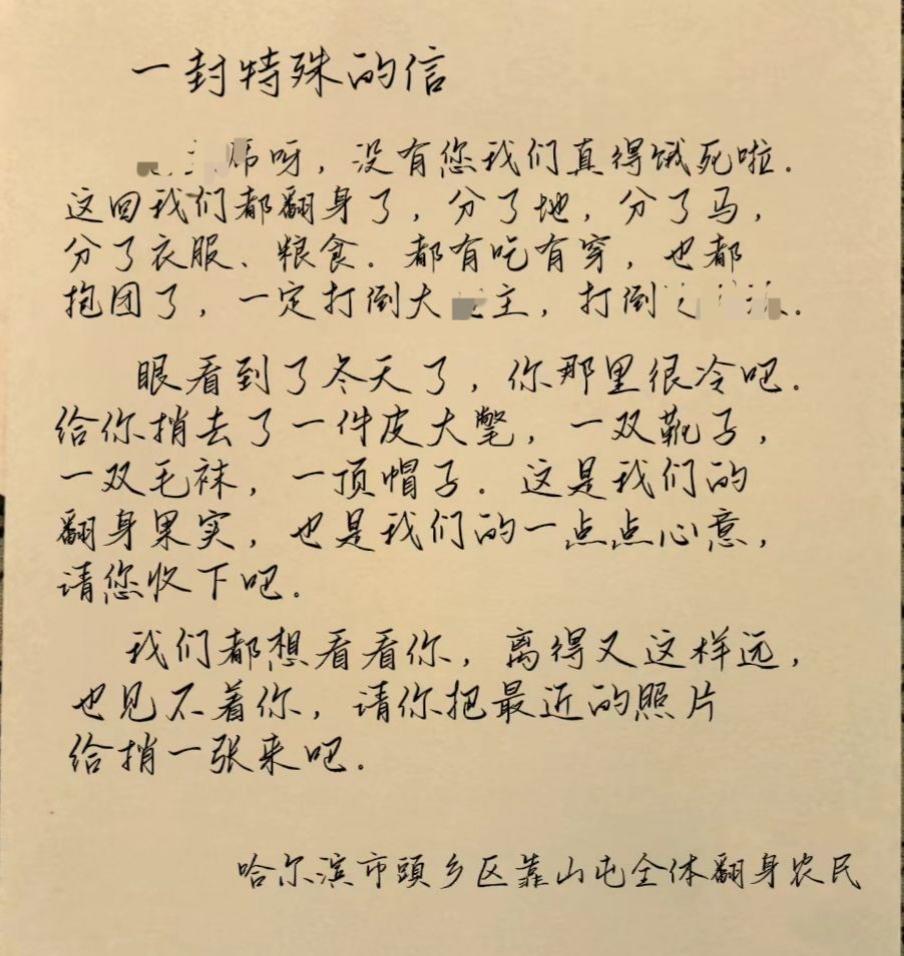 一封特殊的信
席呀，没有您我们真得饿死啦.
这回我们都翻身了，分了地，分了马，
分了衣服、粮食.都有吃有穿，也都
抱团了，一定打倒大主，打倒.
眼看到了冬天了，你那里很冷吧.
给你捎去了一件皮大氅，一双靴子，
一双毛袜，一顶帽子.这是我们的
翻身果实，也是我们的一点点心意，
请您收下吧.
我们都想看看你，离得又这样远，
也见不着你，请你把最近的照片
给捎一张来吧.
哈尔滨市頭乡区靠山屯全体翻身农民